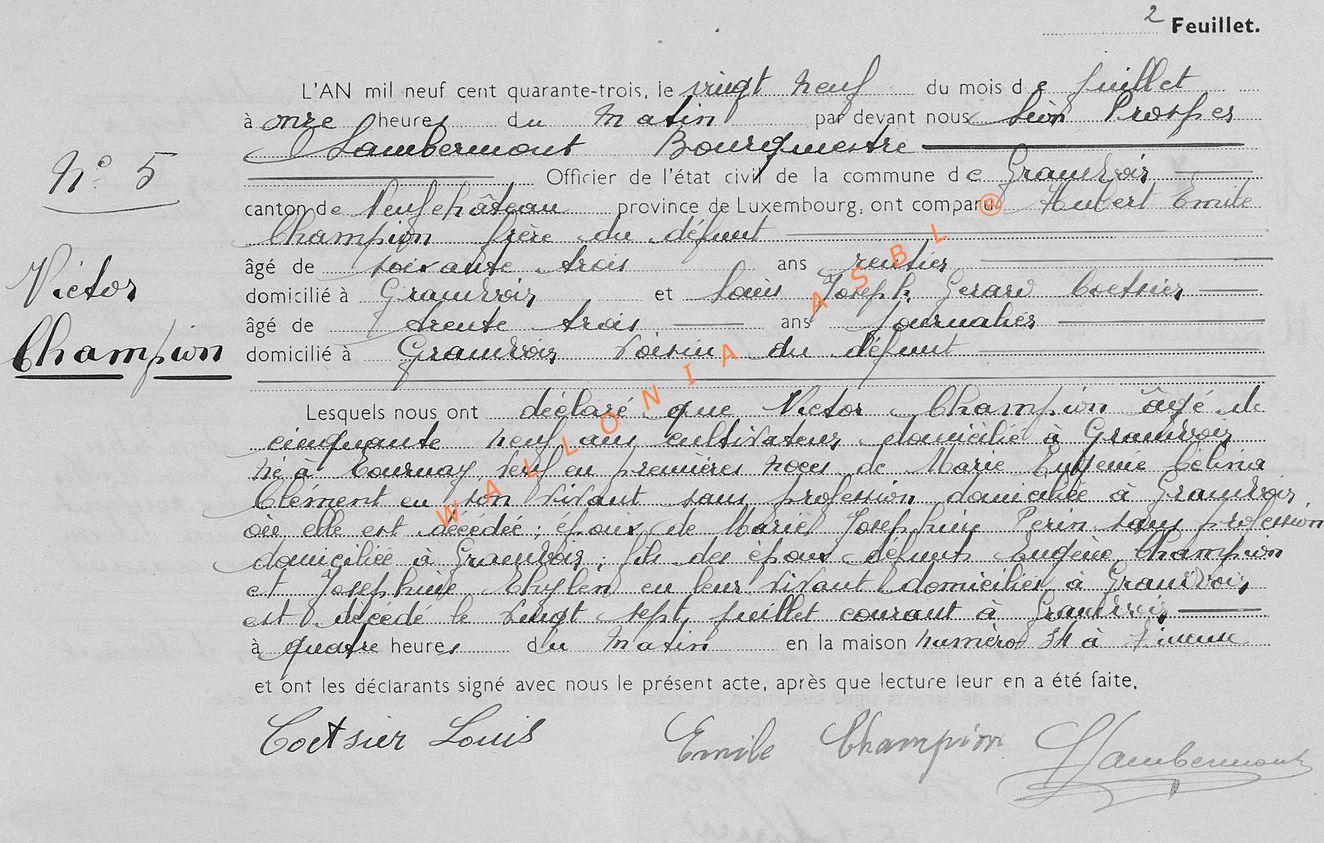 2 Feuillet.
L'AN mil neuf cent quarante-trois, le vingt neuf du mois de juillet
à onze heures du matin par devant nous Léon Prosper
Lambermont Bourgmestre
N° 5
Officier de l'état civil de la commune de Grandvoir
canton de Neufchâteau province de Luxembourg, ont comparu Hubert Emile
Champion frère du défunt
âgé de soixante trois ans rentier
Victor
domicilié à Grandvoir et Louis Joseph Gerard Coetsier
âgé de trente trois ans journalier
Champion
domicilié à Grandvoir voisin du défunt
Lesquels nous ont déclaré que Victor Champion âgé de
cinquante neuf ans cultivateur domicilié à Grandvoir
né à Tournay, veuf en premières noces de Marie Eugénie Célina
Clément en son vivant sans profession domiciliée à Grandvoir
où elle est décédée; époux de Marie Josephine Perin sans profession
domiciliée à Grandvoir; fils des époux défunts Eugène Champion
et Josephine en leur vivant domiciliés à Grandvoir
est décédé le vingt sept juillet courant à Grandvoir
à quatre heures du matin en la maison numéro 34 à
et ont les déclarants signé avec nous le présent acte, après que lecture leur en a été faite.
Coetsier Louis Emile Champion Lambermont
WALLONIA ASBL ®